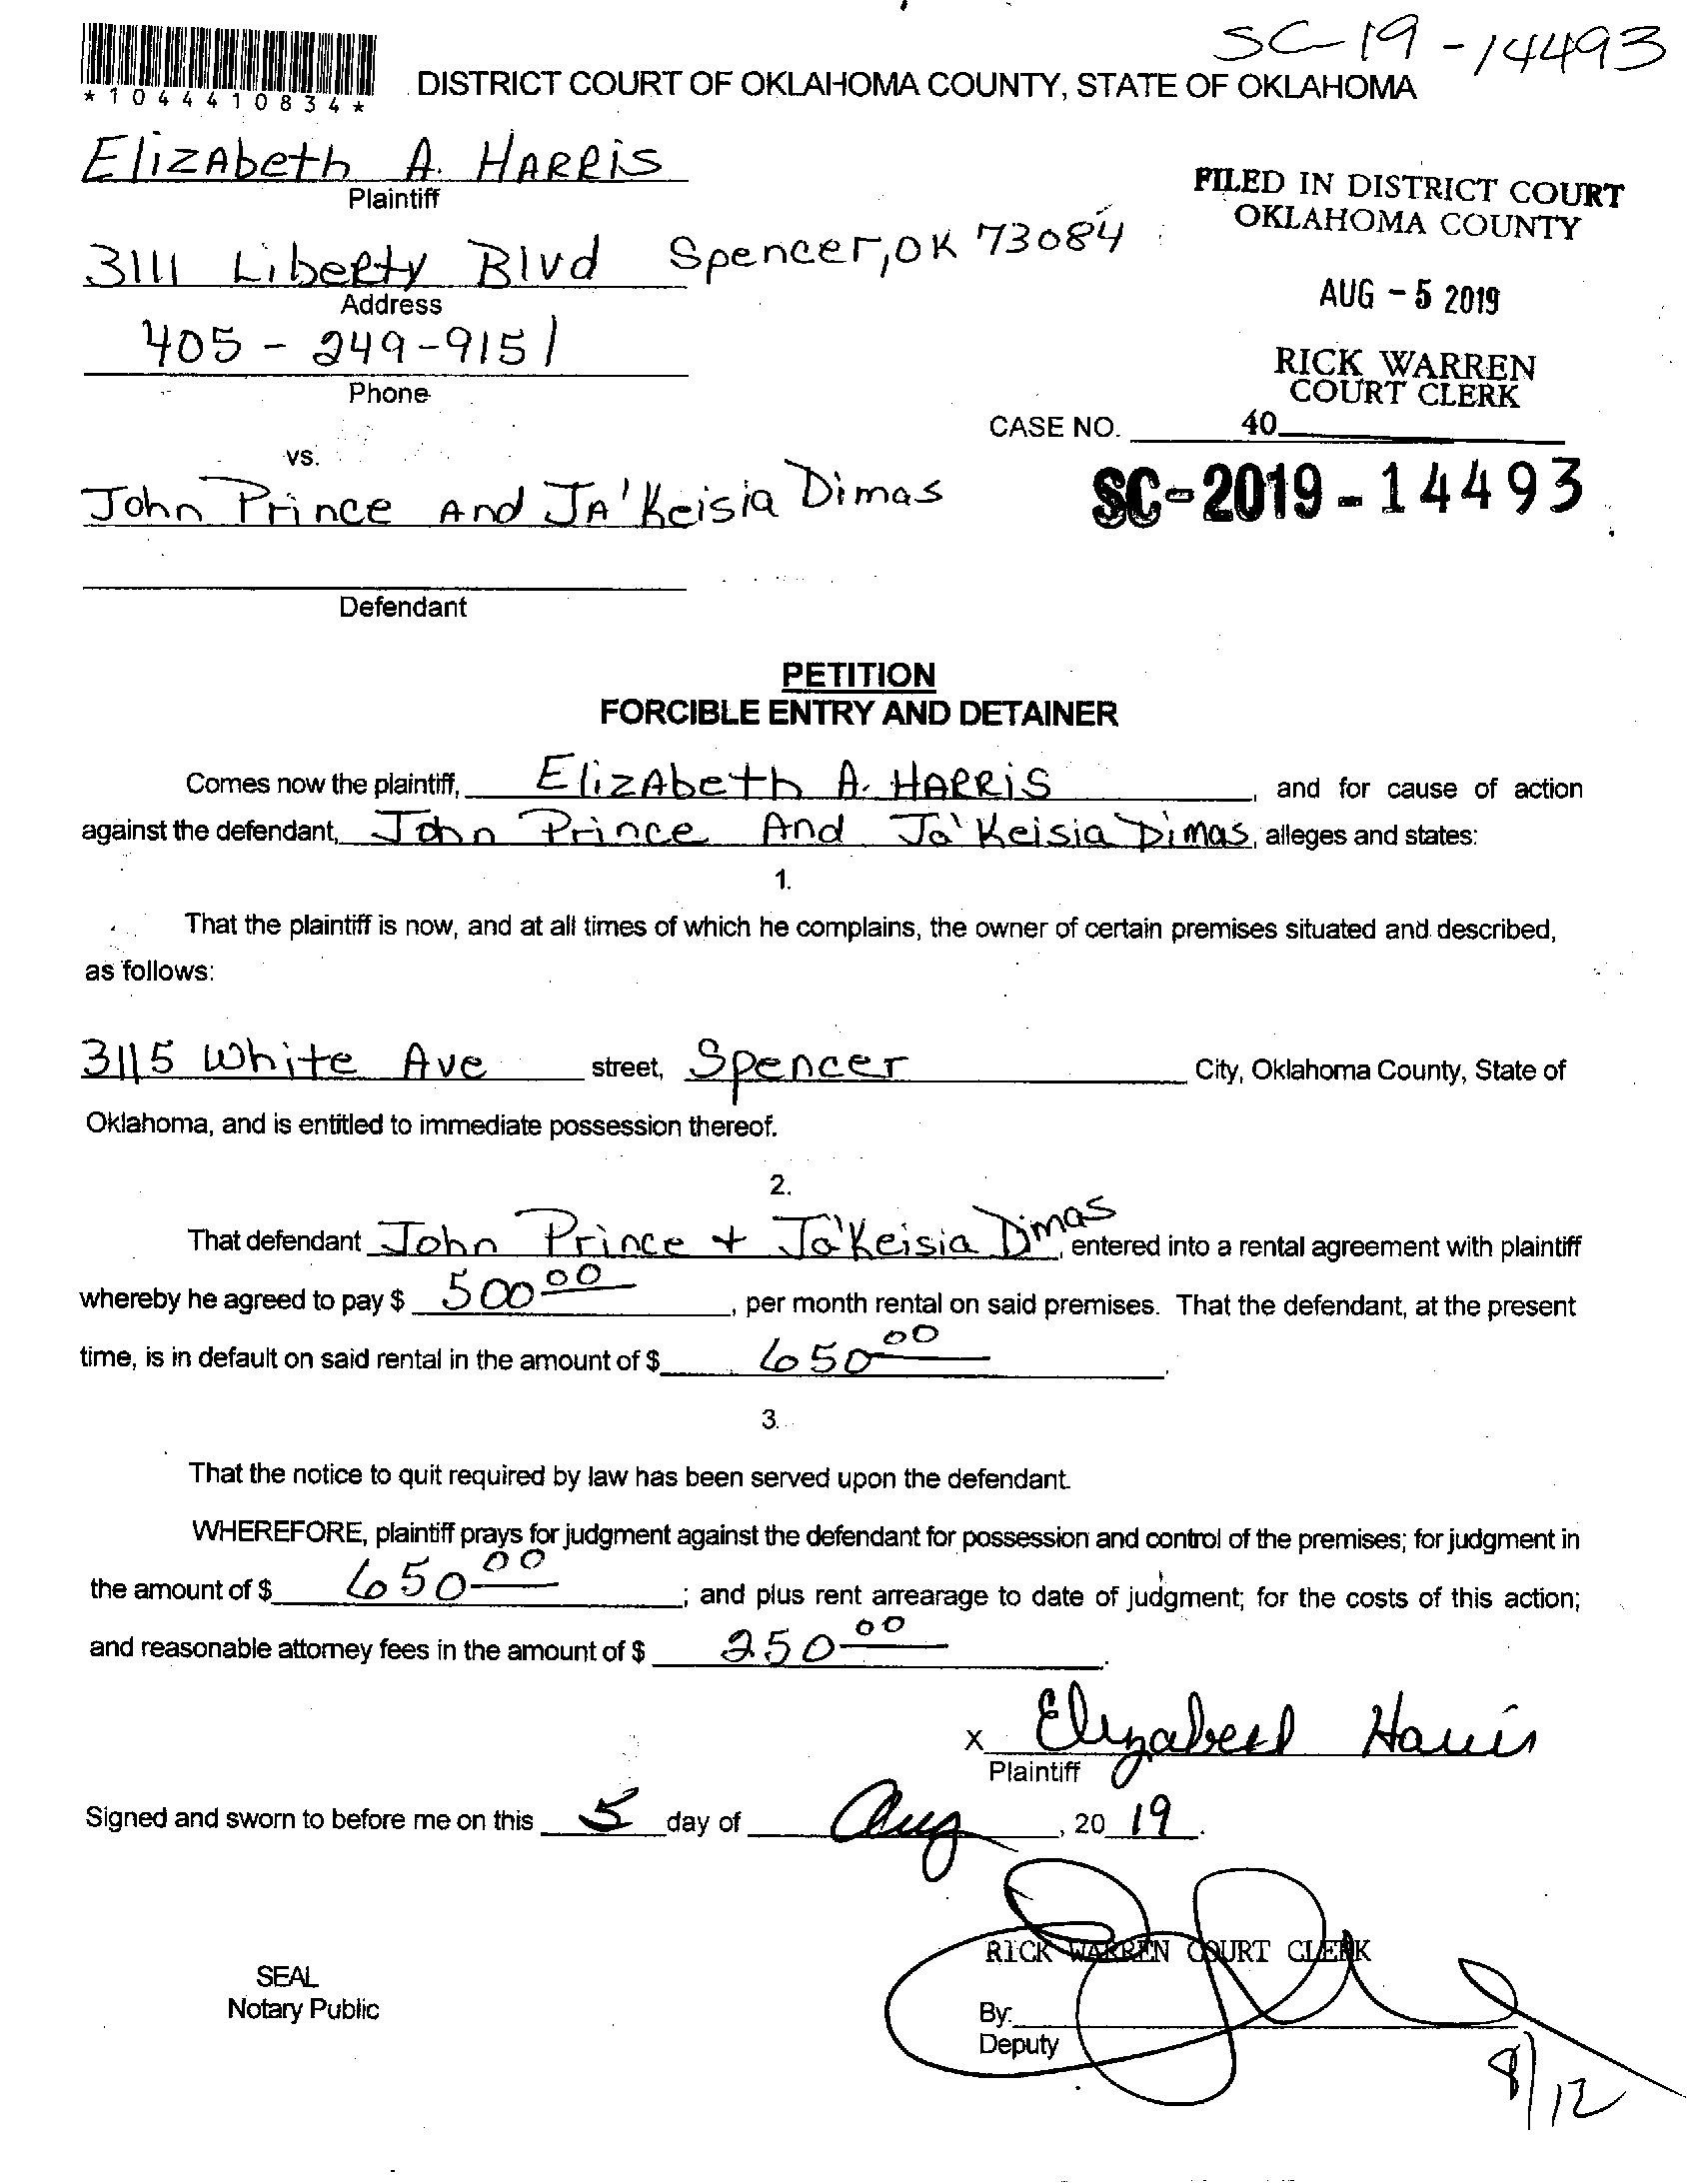 SC-19-14493
*1044410834*
DISTRICT COURT OF OKLAHOMA COUNTY, STATE OF OKLAHOMA
ElizAbeth A. HARRiS
Plaintiff
FILED IN DISTRICT COURT
OKLAHOMA COUNTY
3111 Liberty Blvd Spencer, OK 73084
Address
AUG - 5 2019
405 - 249-9151
Phone
RICK WARREN
COURT CLERK
CASE NO. 40
vs.
SC-2019-14493
John Prince And JA'Keisia Dimas
Defendant
PETITION
FORCIBLE ENTRY AND DETAINER
Comes now the plaintiff, ElizAbeth A. HARRiS, and for cause of action
against the defendant, John Prince And Ja'Keisia Dimas, alleges and states:
1.
That the plaintiff is now, and at all times of which he complains, the owner of certain premises situated and described,
as follows:
3115 White Ave street, Spencer City, Oklahoma County, State of
Oklahoma, and is entitled to immediate possession thereof.
2.
That defendant John Prince + Ja'Keisia Dimas, entered into a rental agreement with plaintiff
whereby he agreed to pay $ 500 00, per month rental on said premises. That the defendant, at the present
time, is in default on said rental in the amount of $ 650 00.
3.
That the notice to quit required by law has been served upon the defendant.
WHEREFORE, plaintiff prays for judgment against the defendant for possession and control of the premises; for judgment in
the amount of $ 650 00; and plus rent arrearage to date of judgment; for the costs of this action;
and reasonable attorney fees in the amount of $ 250 00.
x Elizabeth Harris
Plaintiff
Signed and sworn to before me on this 5 day of Aug, 20 19.
RICK WARREN COURT CLERK
SEAL
Notary Public
By:
Deputy
8/12